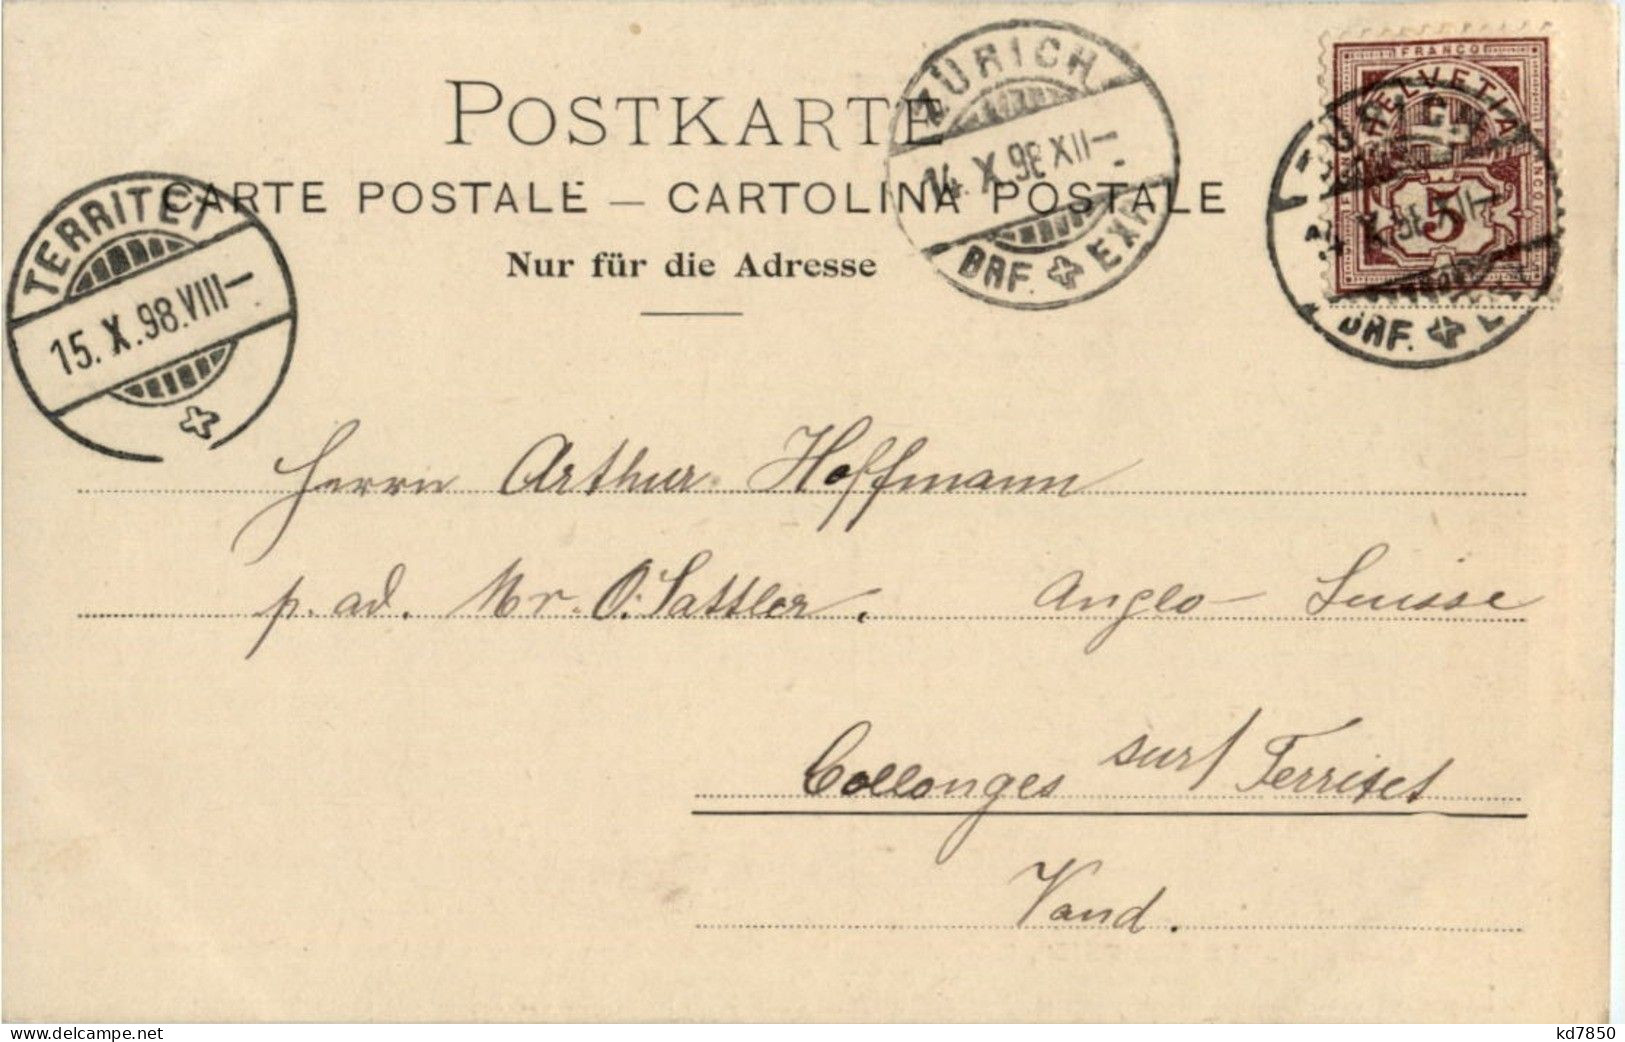 POSTKARTE
CARTE POSTALE — CARTOLINA POSTALE
Nur für die Adresse
ZÜRICH
14. X. 98 XII—
BRF. EXP.
FRANCO
HELVETIA
5
ZÜRICH
14. X. 98 XII—
BRF. E
TERRITET
15. X. 98. VIII—
Herrn Arthur Hoffmann
p. ad. Mr. O. Sattler. Anglo-Suisse
Collonges sur/Territet
Vaud.
kd7850